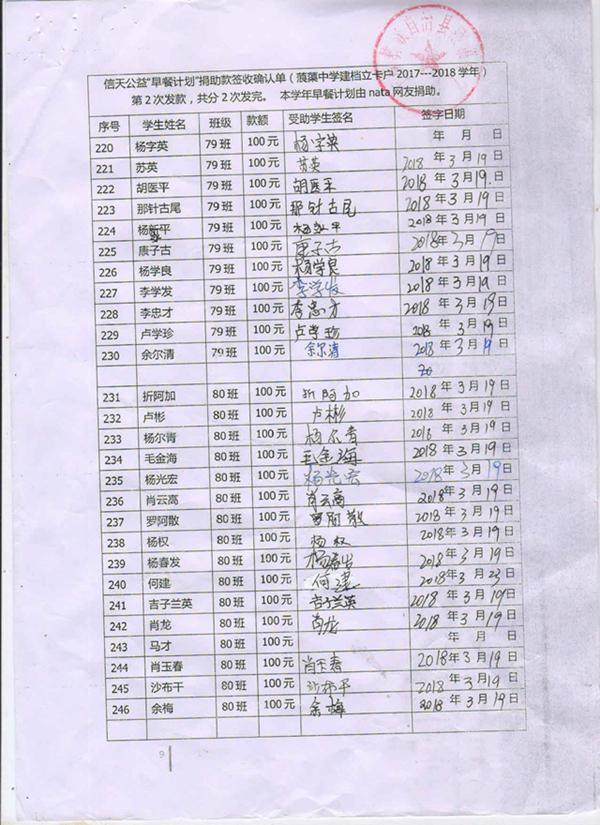 信天公益"早餐计划"捐助款签收确认单（蒗蕖中学建档立卡户2017---2018学年）
第2次发款，共分2次发完。 本学年早餐计划由nata网友捐助。
序号 学生姓名 班级 款额 受助学生签名 签字日期
220 杨字英 79班 100元 杨字英 年 月 日
221 苏英 79班 100元 苏英 2018年3月19日
222 胡医平 79班 100元 胡医平 2018年3月19日
223 那针古尾 79班 100元 那针古尾 2018年3月19日
224 杨 平 79班 100元 杨 平 2018年3月19日
225 庚子古 79班 100元 庚子古 2018年3月19日
226 杨学良 79班 100元 杨学良 2018年3月19日
227 李学发 79班 100元 李学发 2018年3月19日
228 李忠才 79班 100元 李忠才 2018年3月19日
229 卢学珍 79班 100元 卢学珍 2018年3月19日
230 余尔清 79班 100元 余尔清 2018年3月19日
20
231 折阿加 80班 100元 折阿加 2018年3月19日
232 卢彬 80班 100元 卢彬 2018年3月19日
233 杨尔青 80班 100元 杨尔青 2018年3月19日
234 毛金海 80班 100元 毛金海 2018年3月19日
235 杨光宏 80班 100元 杨光宏 2018年3月19日
236 肖云高 80班 100元 肖云高 2018年3月19日
237 罗阿散 80班 100元 罗阿散 2018年3月19日
238 杨权 80班 100元 杨权 2018年3月19日
239 杨春发 80班 100元 杨春发 2018年3月19日
240 何建 80班 100元 何建 2018年3月23日
241 吉子兰英 80班 100元 吉子兰英 2018年3月19日
242 肖龙 80班 100元 肖龙 2018年3月19日
243 马才 80班 100元 年 月 日
244 肖玉春 80班 100元 肖玉春 2018年3月19日
245 沙布干 80班 100元 沙布干 2018年3月19日
246 余梅 80班 100元 余梅 2018年3月19日
9